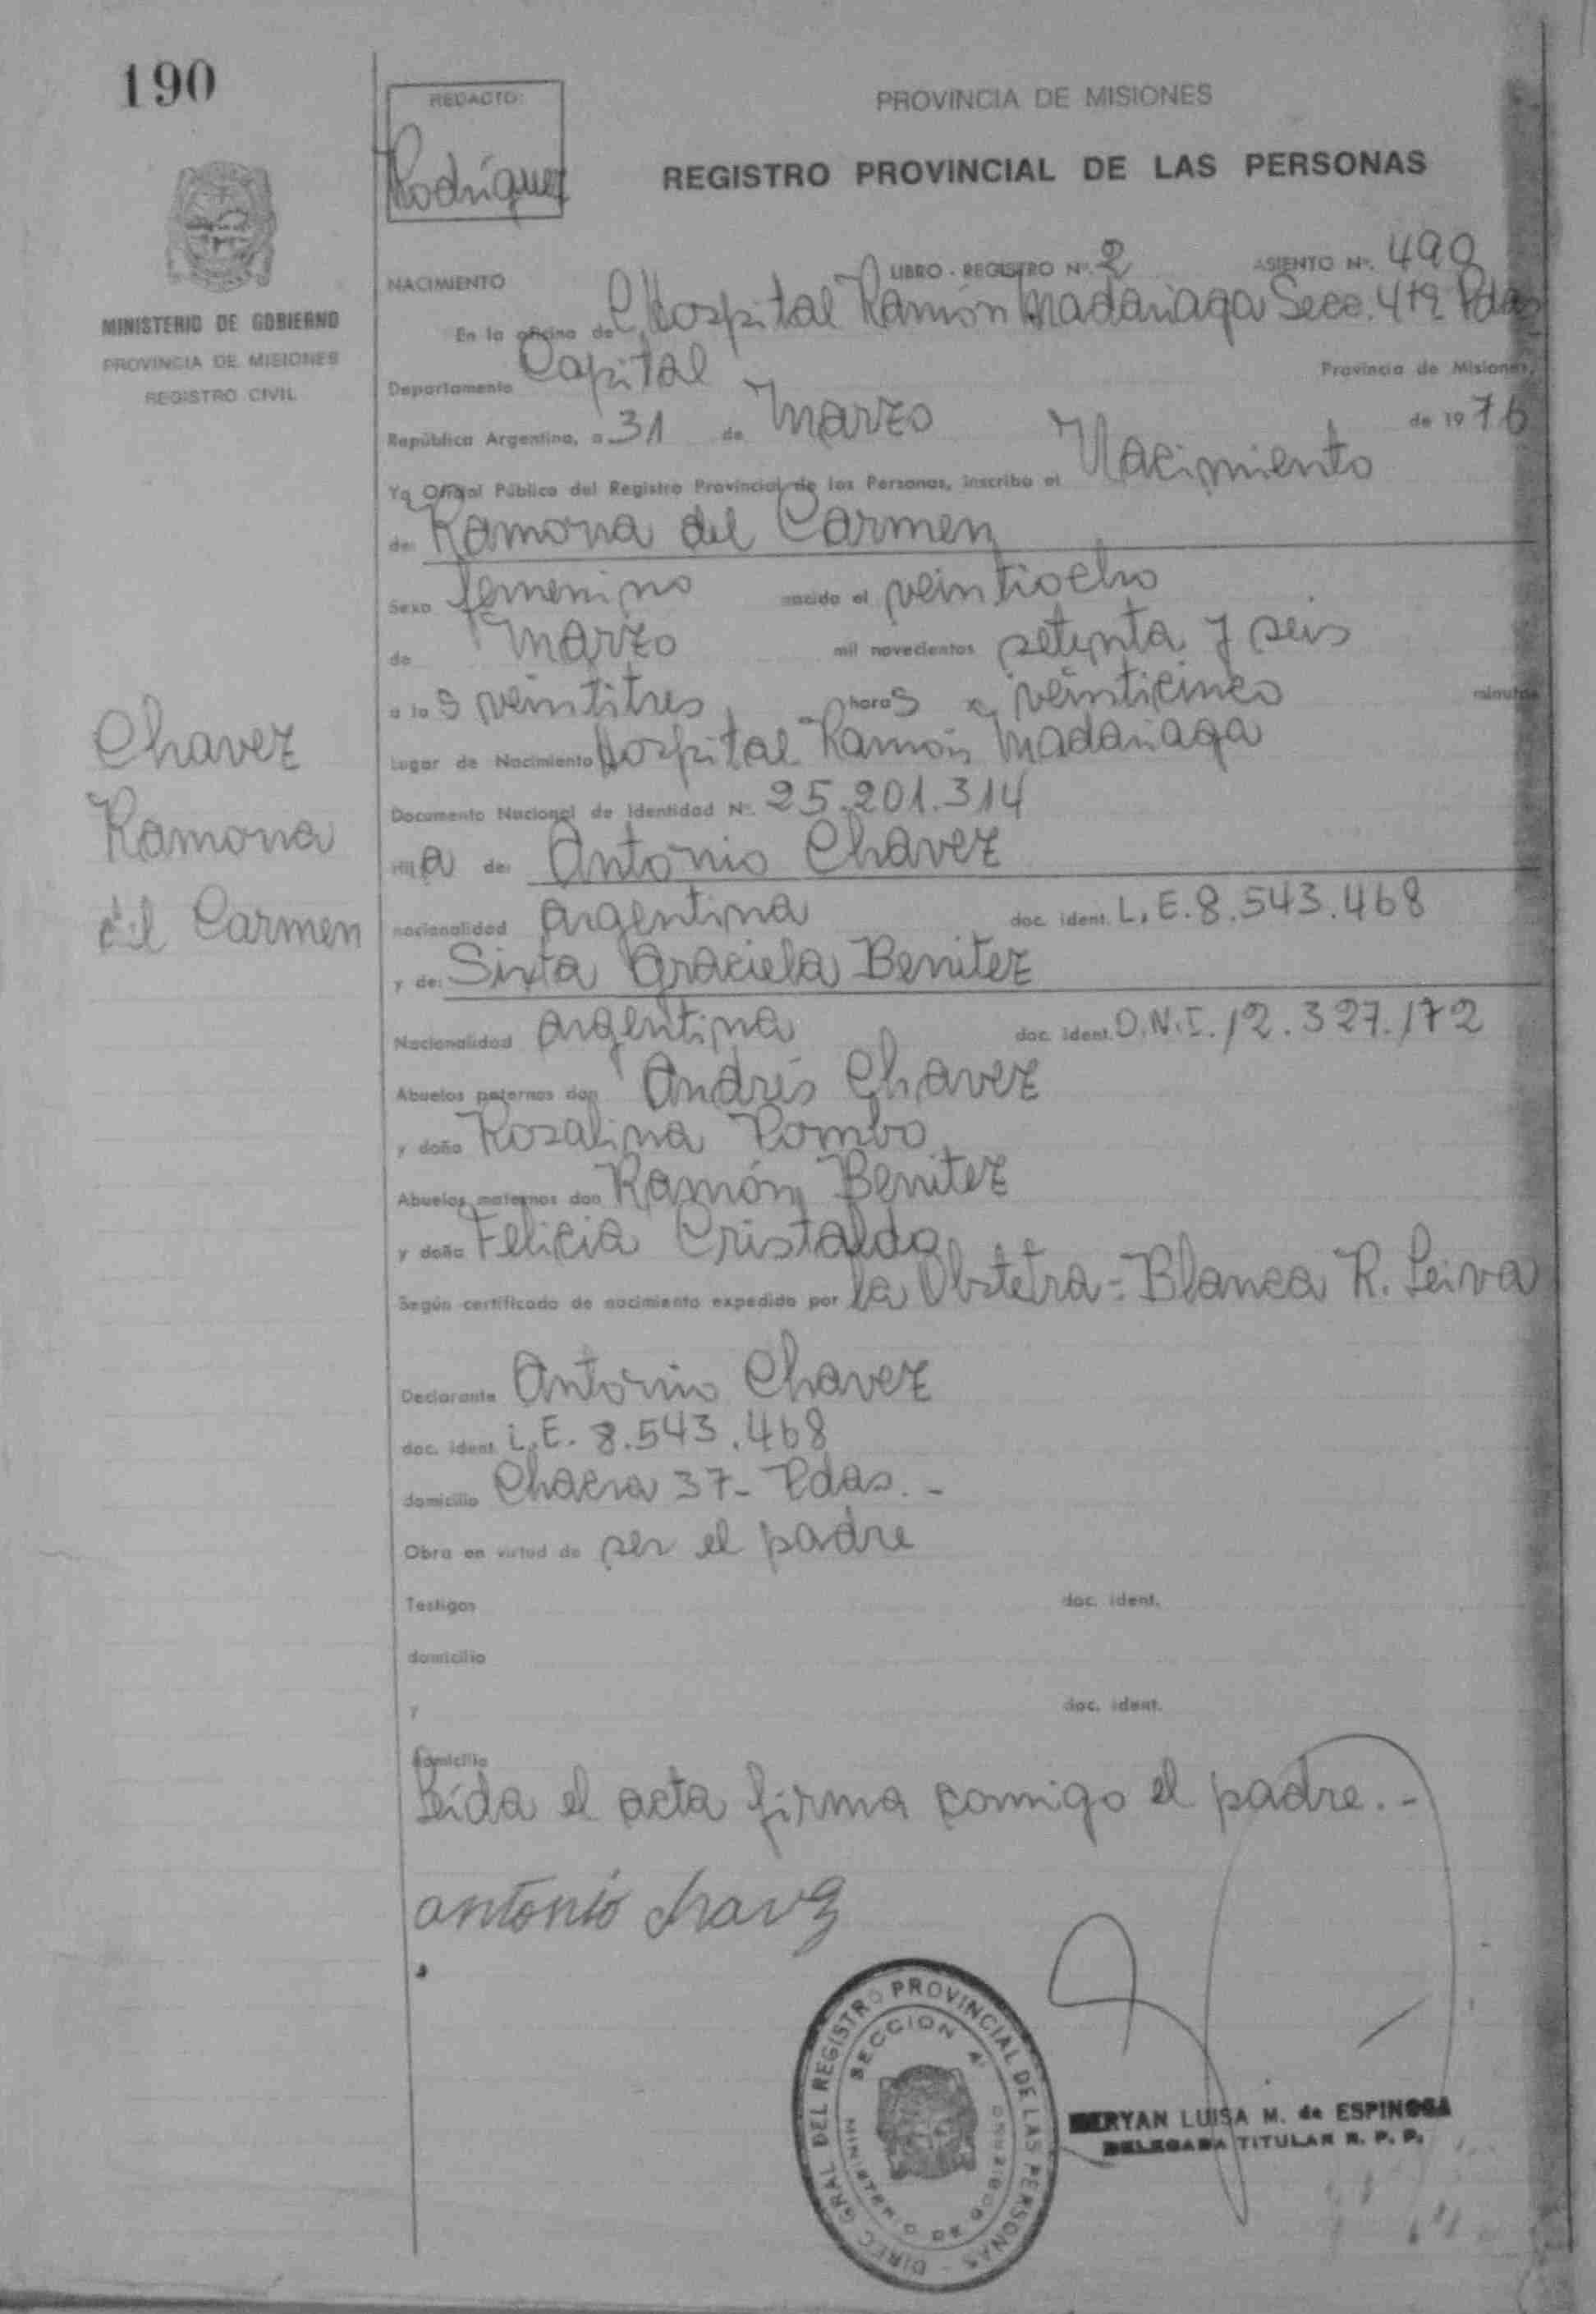 190
REDACTO:
Rodríguez
PROVINCIA DE MISIONES
REGISTRO PROVINCIAL DE LAS PERSONAS
MINISTERIO DE GOBIERNO
PROVINCIA DE MISIONES
REGISTRO CIVIL
NACIMIENTO LIBRO - REGISTRO Nº. 2 ASIENTO Nº. 490
En la oficina de Hospital Ramón Madariaga Secc. 4ta Pdas
Departamento Capital Provincia de Misiones,
República Argentina, a 31 de Marzo de 1976
Yo Oficial Público del Registro Provincial de las Personas, inscribo el Nacimiento
de: Ramona del Carmen
Sexo femenino nacido el veintiocho
de Marzo mil novecientos setenta y seis
a las veintitres horas veinticinco minutos
Lugar de Nacimiento Hospital Ramón Madariaga
Documento Nacional de Identidad Nº. 25.201.314
Chavez
Ramona
del Carmen
Hija de: Antonio Chavez
nacionalidad argentina doc. ident. L.E. 8.543.468
y de: Sixta Graciela Benitez
Nacionalidad argentina doc. ident. D.N.I. 12.327.172
Abuelos paternos don Andrés Chavez
y doña Rosalina Pombo
Abuelos maternos don Ramón Benitez
y doña Felicia Cristaldo
Según certificado de nacimiento expedido por la Obstetra = Blanca R. Leiva
Declarante Antonio Chavez
doc. ident. L.E. 8.543.468
domicilio Chacra 37 - Pdas. -
Obra en virtud de ser el padre
Testigos doc. ident.
domicilio
y doc. ident.
domicilio
Leída el acta firma comigo el padre. -
antonio chavez
DIREC. GRAL. DEL REGISTRO PROVINCIAL DE LAS PERSONAS -
SECCION 4ª
MINISTERIO DE GOBIERNO
MERYAN LUISA M. de ESPINOSA
DELEGADA TITULAR R. P. P.